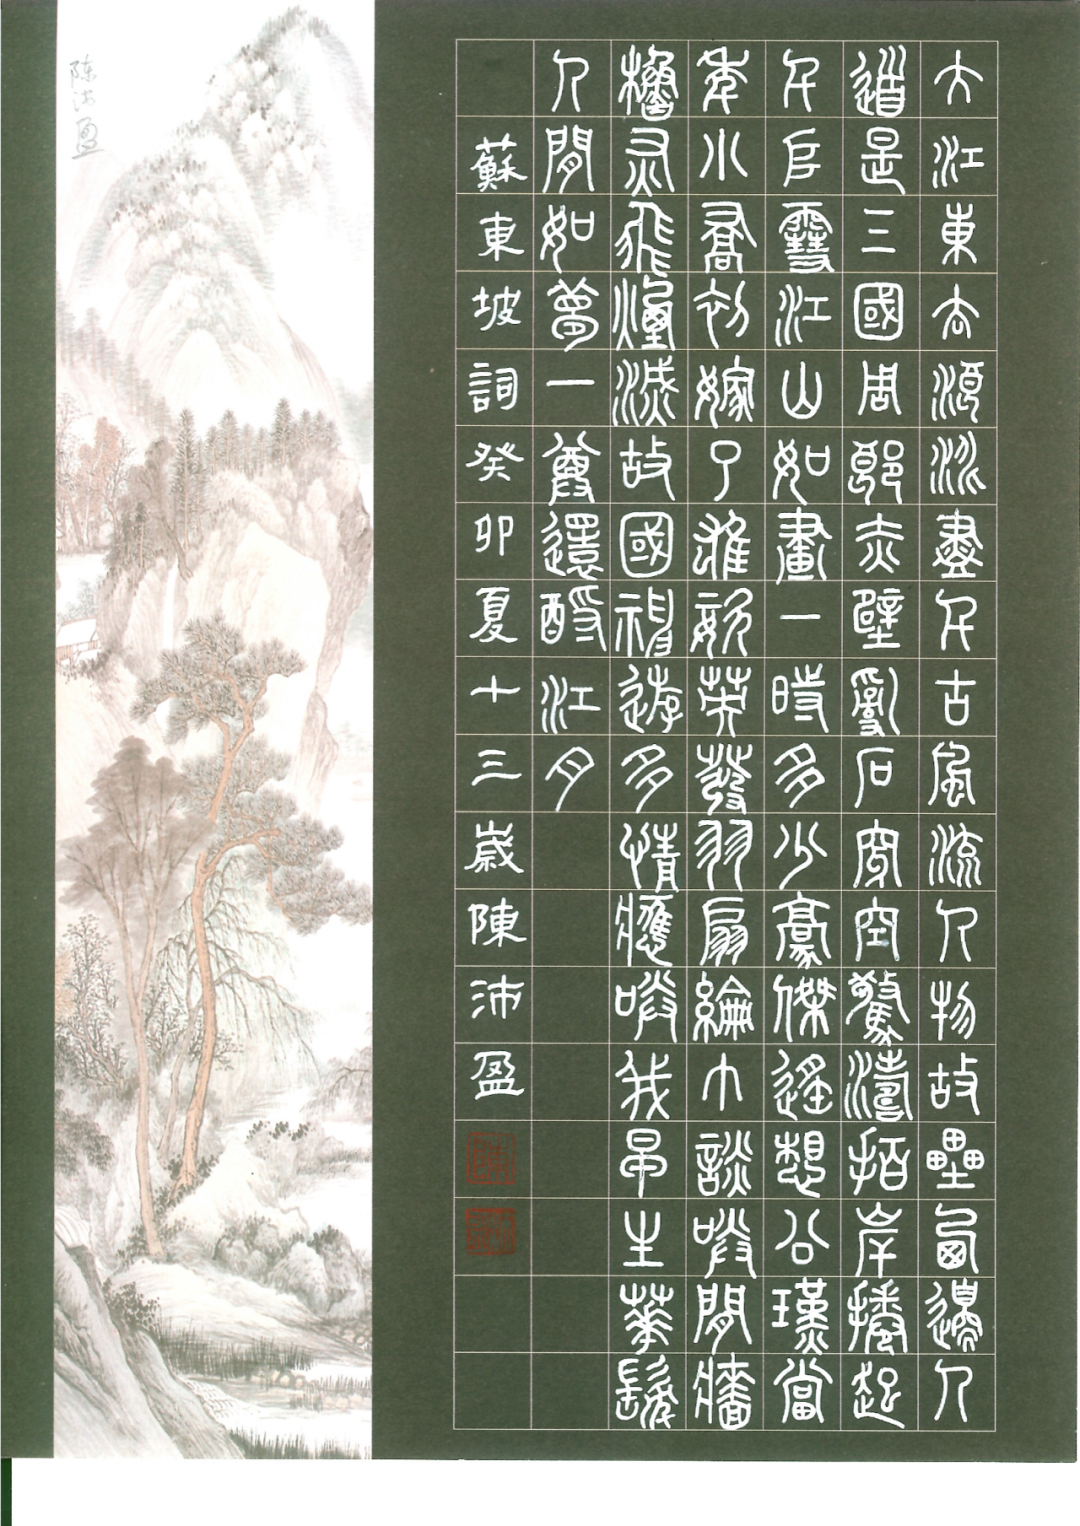 大江東去浪淘盡千古風流人物故壘西邊人
道是三國周郎赤壁亂石穿空驚濤拍岸捲起
千堆雪江山如畫一時多少豪傑遙想公瑾當
年小喬初嫁了雄姿英發羽扇綸巾談笑間檣
櫓灰飛煙滅故國神遊多情應笑我早生華髮
人間如夢一尊還酹江月
蘇東坡詞癸卯夏十三歲陳沛盈
陈沛盈